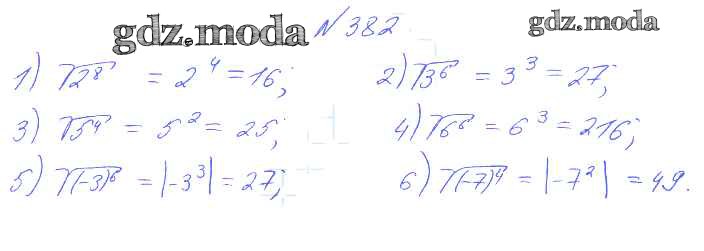 gdz.moda №382 gdz.moda
1) √2⁸ = 2⁴ = 16; 2) √3⁶ = 3³ = 27;
3) √5⁴ = 5² = 25; 4) √6⁶ = 6³ = 216;
5) √(-3)⁶ = |-3³| = 27; 6) √(-7)⁴ = |-7²| = 49.